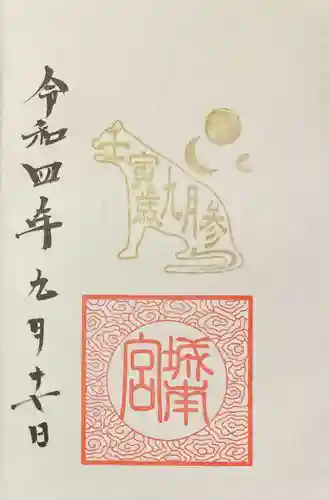 令和四年九月十日
壬寅歳九月参
城南宮